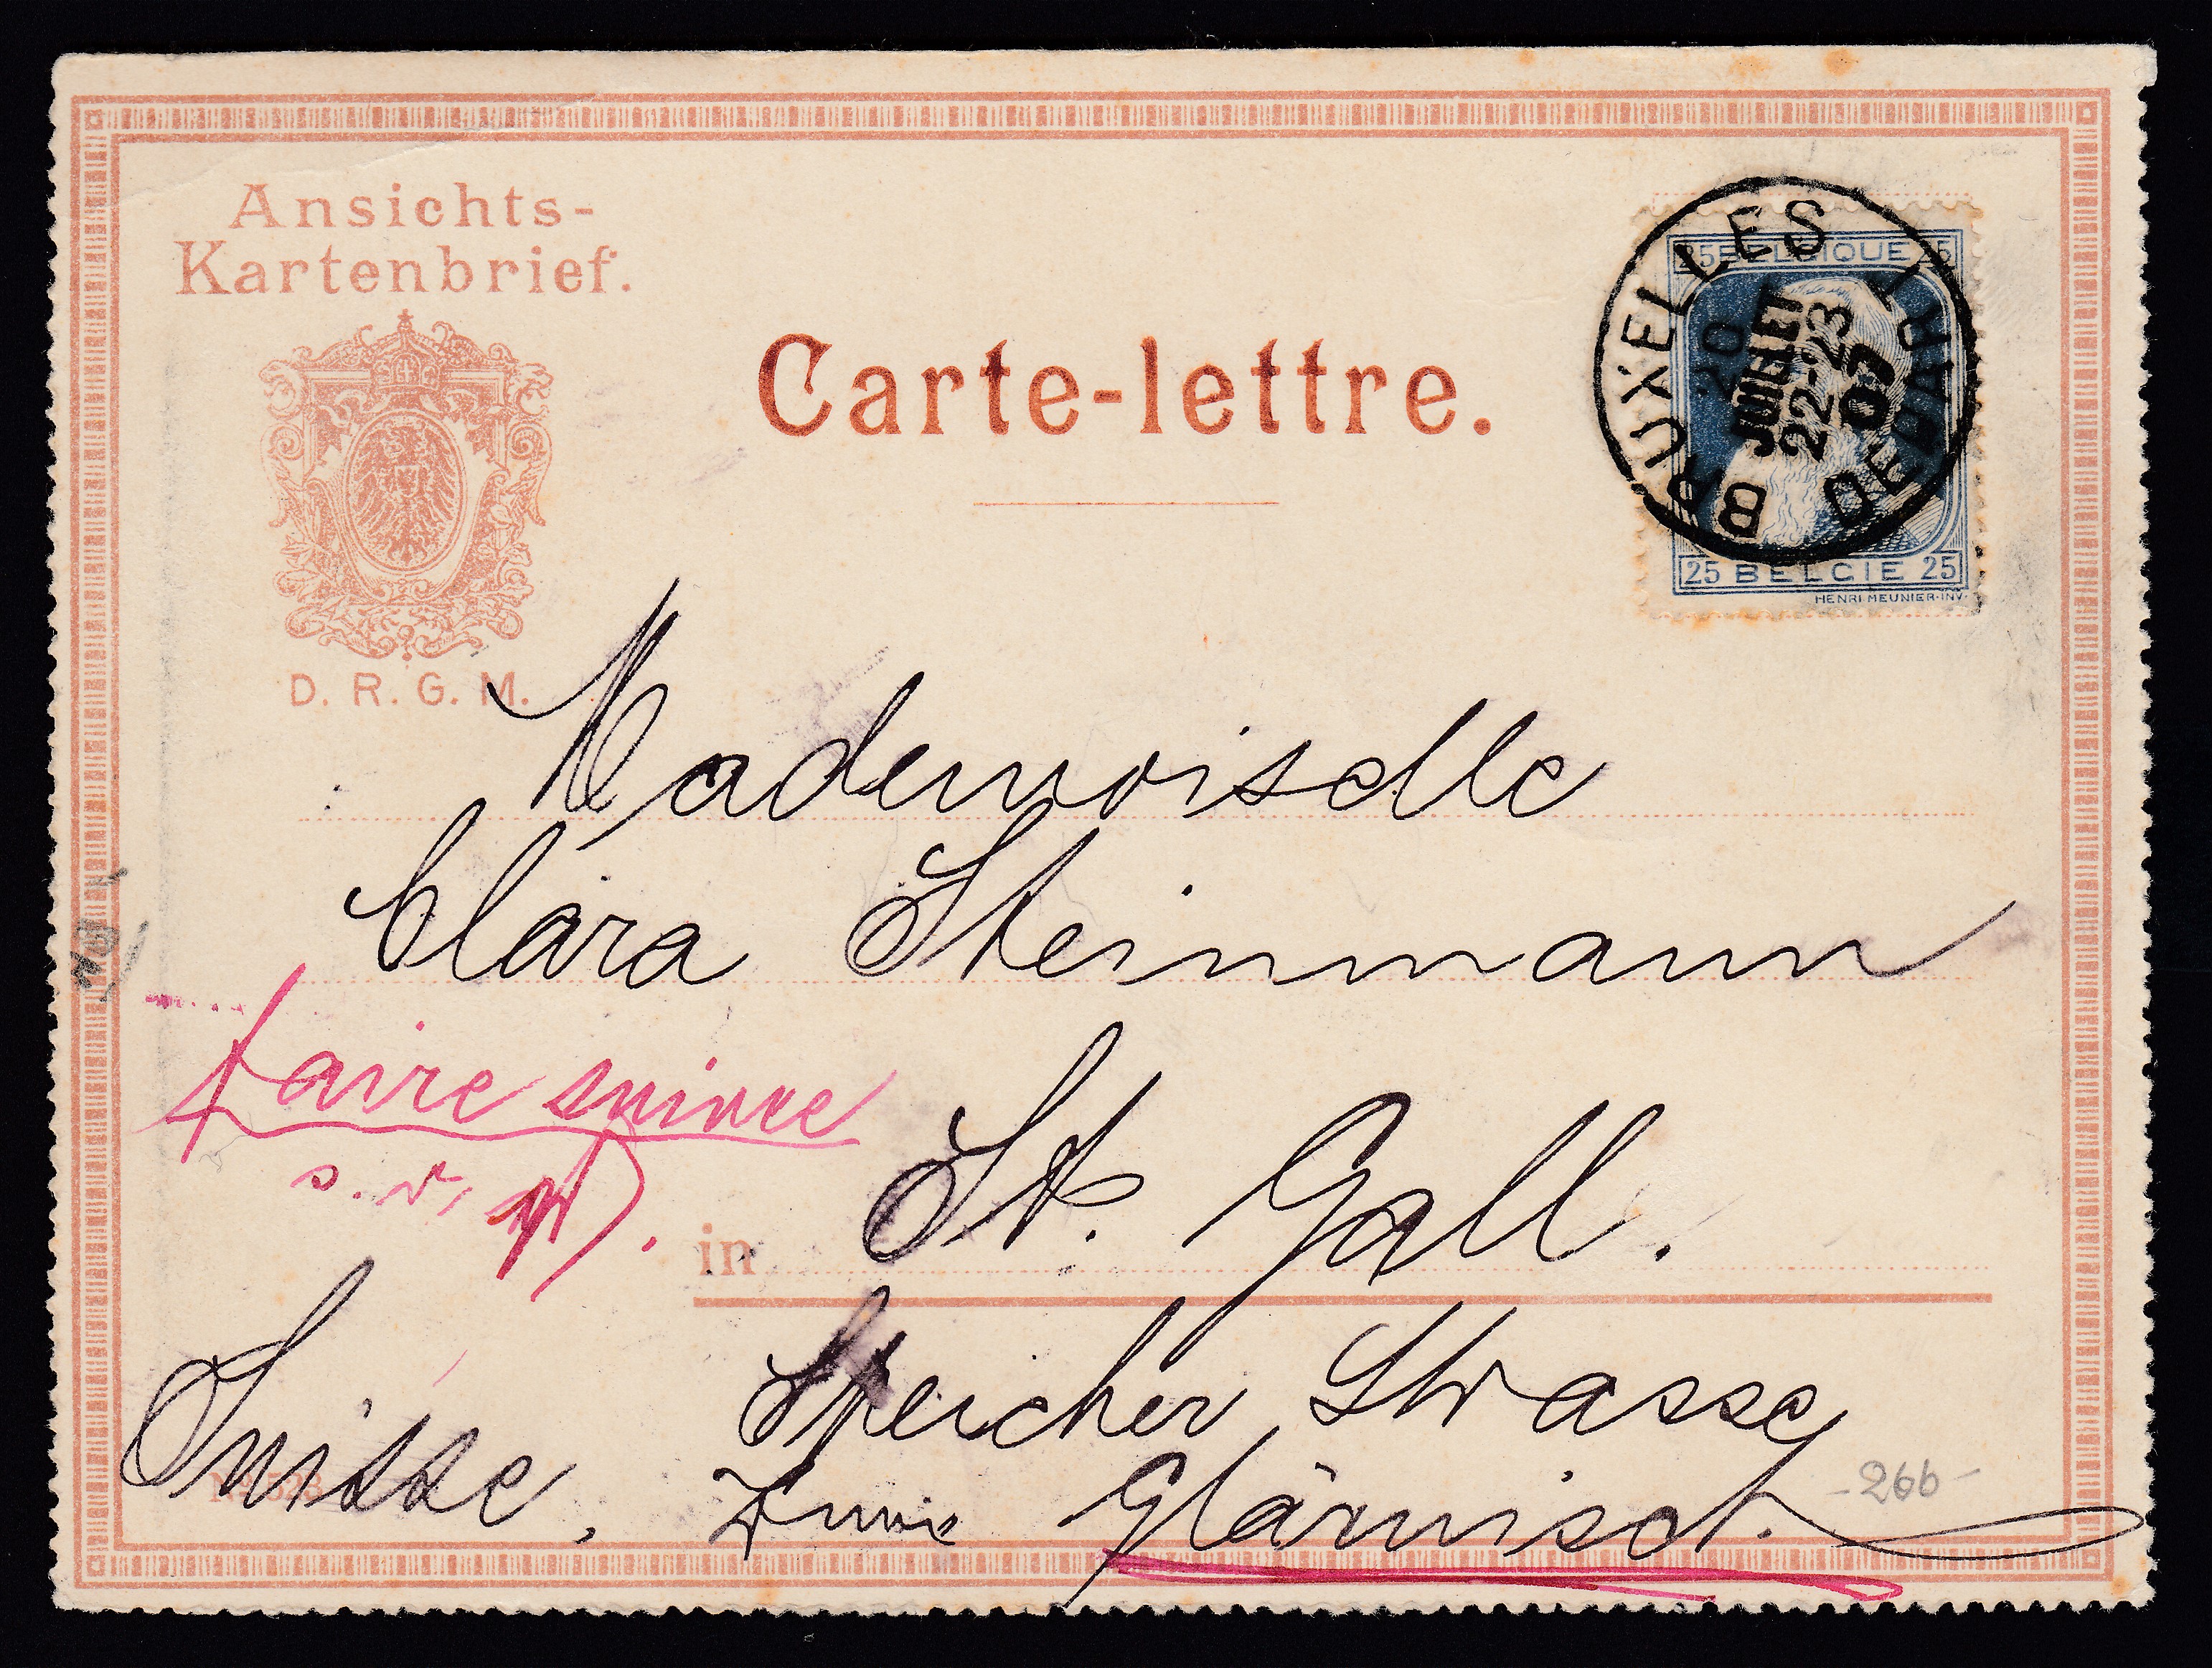 Ansichts-
Kartenbrief.
D. R. G. M.
Carte-lettre.
25 BELGIQUE 25
BRUXELLES 1
DEPART
20
JUILLET
22-23
07
25 BELGIE 25
HENRI MEUNIER·INV.
Mademoiselle
Clara Steinmann
faire suivre
s. v. p.
in St. Gall.
Speicher Strasse
Suisse.
Zum Glärnisch.
-266-